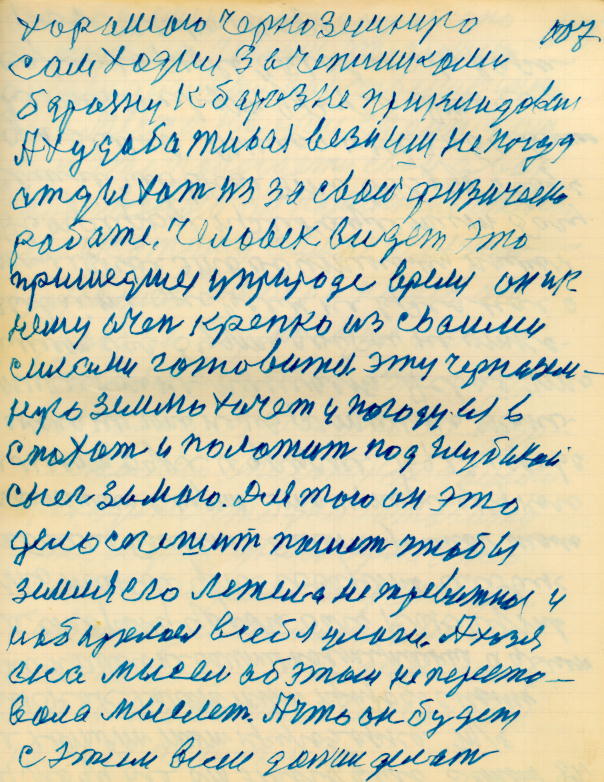 хорошою черноземнуро 107.
сам ходил за чепигиками
барозну к барозне прикладовал
А худоба тивая везли и непогуд
отдыхат из за своей физическо
работе. Человек видет это
пришедшея у природе время он ик
нему очен крепко из своими
силами готовится эту черназем-
нуро землю хочет у погоду ея в
спохат и положит под глубокой
снег зимою. Для того он это
дело спешит пашет чтобы
земля его лежела не тревожно и
набиралася в себя улаги. А хозя
ска мысел об этом не пересто-
вала мыслет. А что он будет
с этим всем дальше делат